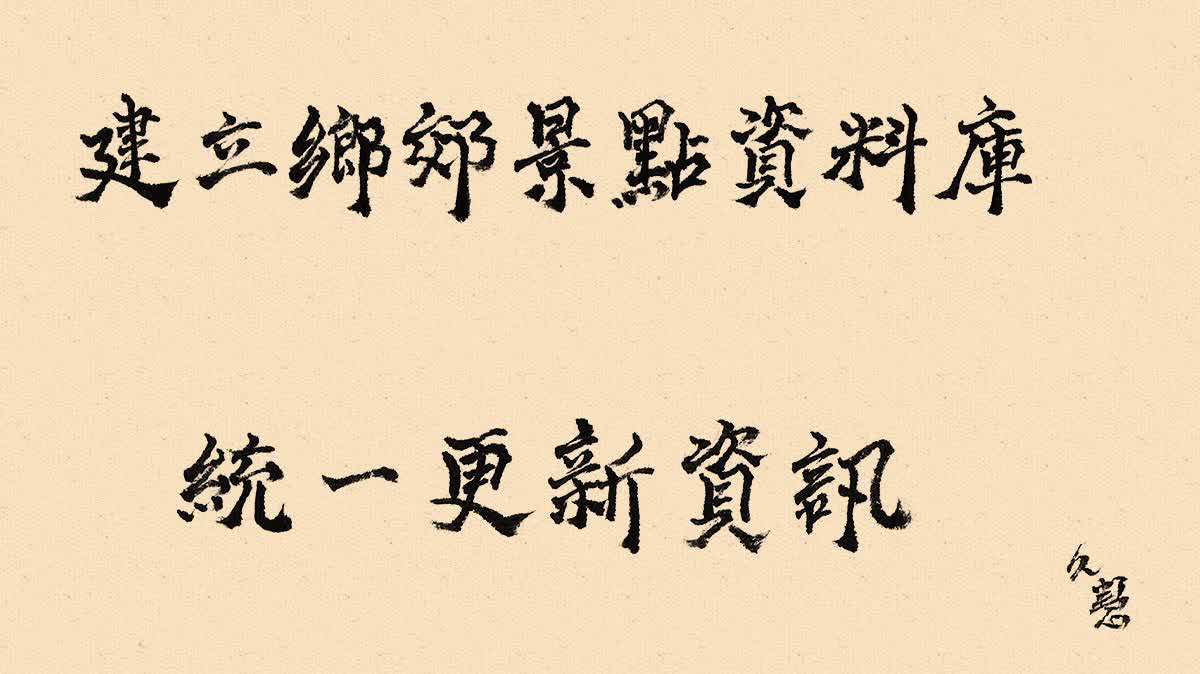 建立鄉郊景點資料庫
統一更新資訊
久慧